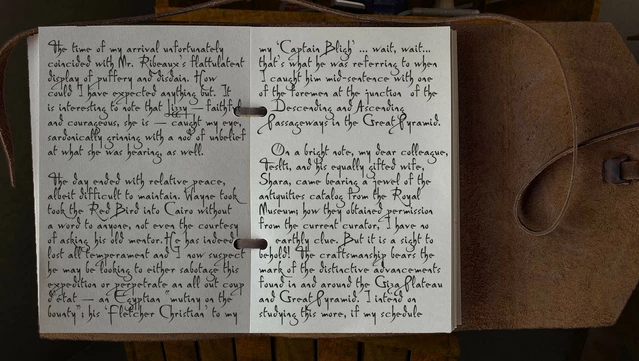 The time of my arrival unfortunately
coincided with Mr. Ribeaux's flattulentent
display of puffery and disdain. How
could I have expected anything but. It
is interesting to note that Jissy — faithful
and courageous, she is — caught my eye,
sardonically grinning with a nod of unbelief
at what she was hearing, as well.
The day ended with relative peace,
albeit difficult to maintain. Wayne took
took the Red Bird into Cairo without
a word to anyone, not even the courtesy
of asking his old mentor. He has indeed
lost all temperament and I now suspect
he may be looking to either sabotage this
expedition or perpetrate an all out coup
d'état — an Egyptian "mutiny on the
bounty"; his 'Fletcher Christian' to my
my 'Captain Bligh' ... wait, wait...
that's what he was referring to when
I caught him mid-sentence with one
of the foremen at the junction of the
Descending and Ascending
Passageways in the Great Pyramid.
On a bright note, my dear colleague,
Teslti, and his equally gifted wife,
Shara, came bearing a jewel of the
antiquities catalog from the Royal
Museum; how they obtained permission
from the current curator, I have no
earthly clue. But it is a sight to
behold! The craftsmanship bears the
mark of the distinctive advancements
found in and around the Giza Plateau
and Great Pyramid. I intend on
studying this more, if my schedule